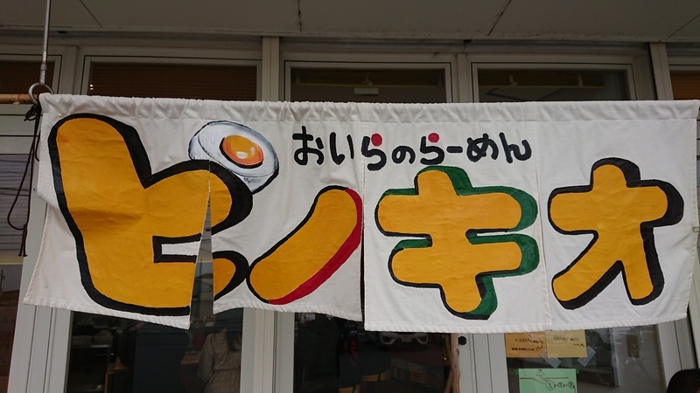 おいらのらーめん
ピノキオ